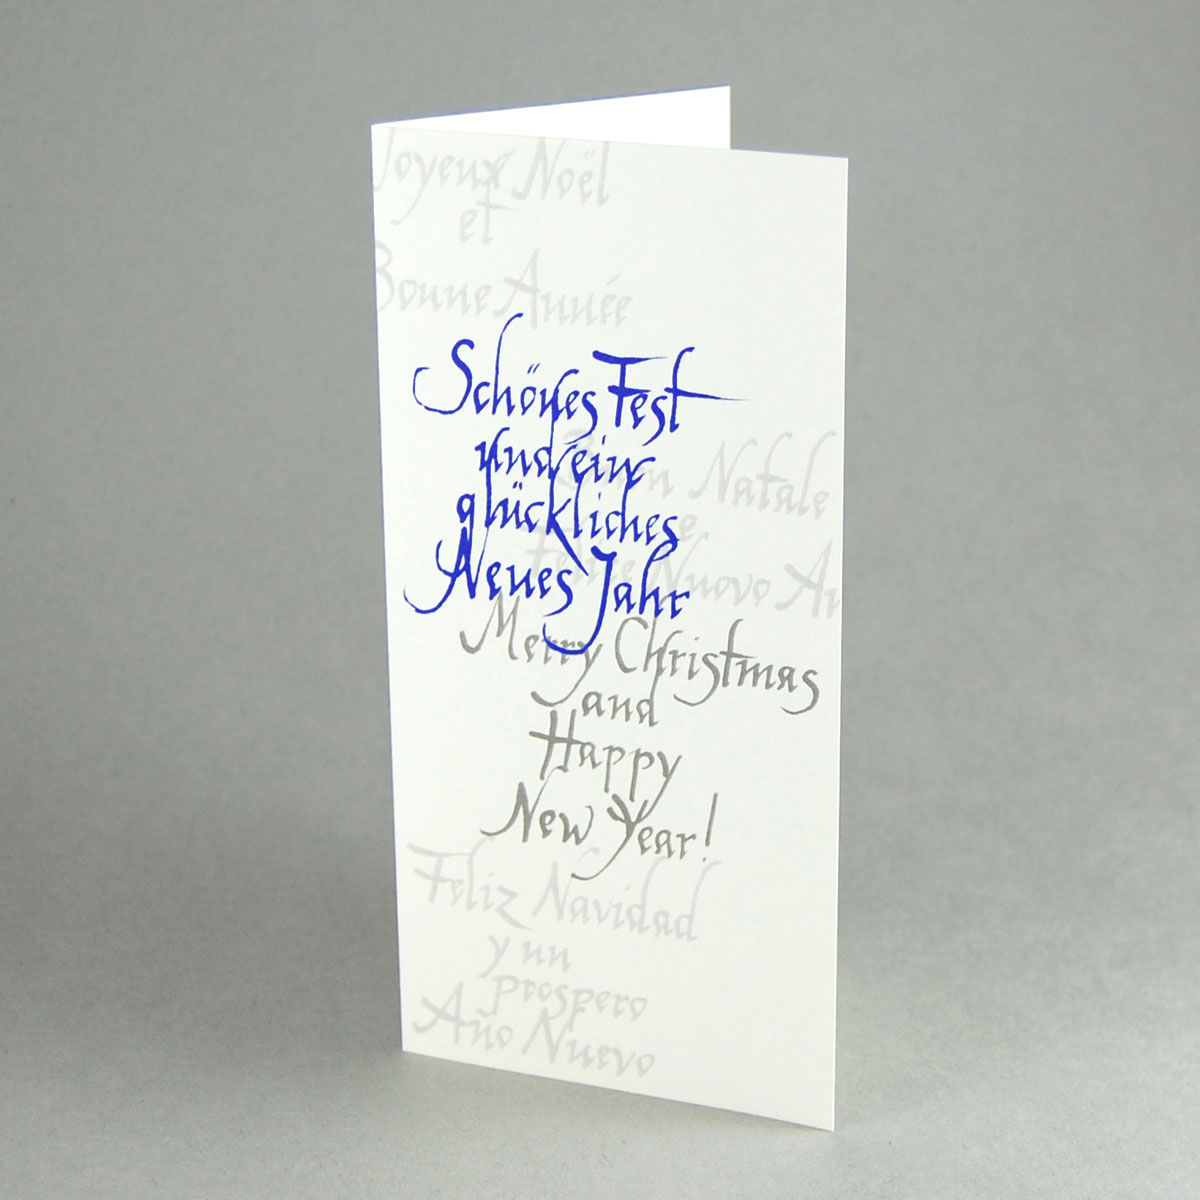 Joyeux Noël
et
Bonne Année
Schönes Fest
und ein
glückliches
Neues Jahr
Buon Natale
e
Felice Nuovo An
Merry Christmas
and
Happy
New Year!
Feliz Navidad
y un
prospero
Año Nuevo